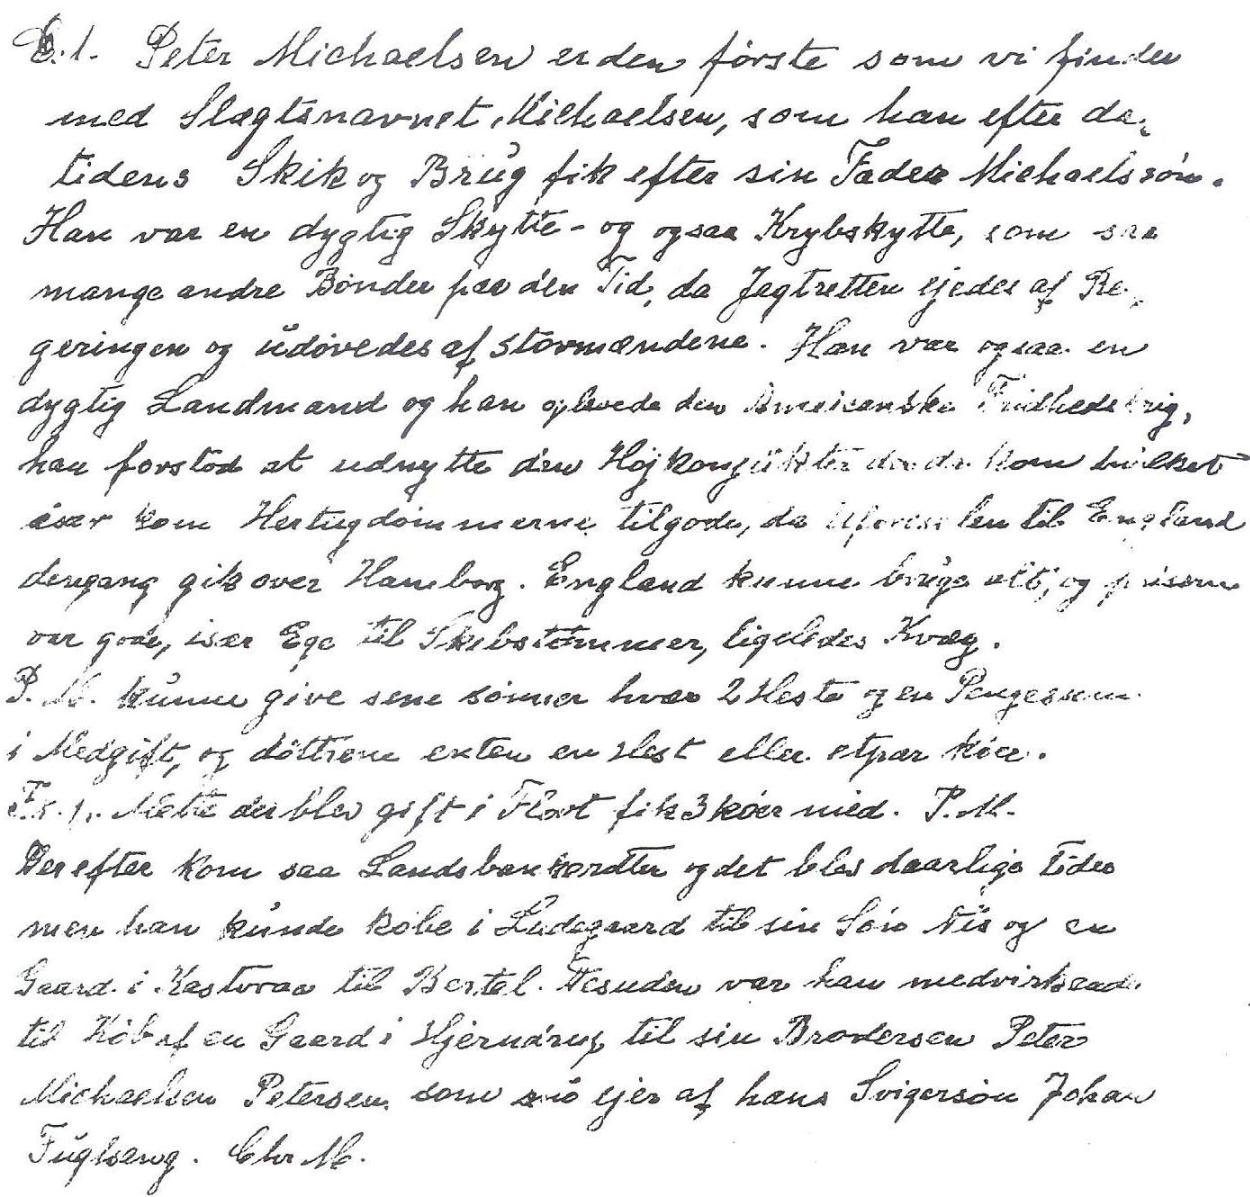 1. Peter Michaelsen er den første som vi finder
med Slægtsnavnet Michaelsen, som han efter da-
tidens Skik og Brug fik efter sin Fader Michaelssøn.
Han var en dygtig Skytte - og ogsaa Krybskytte, som saa
mange andre Bønder paa den Tid, da Jagtretten ejedes af Re-
geringen og udøvedes af Stormændene. Han var ogsaa en
dygtig Landmand og han oplevede den Amerikanske Friidhedskrig,
han forstod at udnytte den Højkonjuktur der da kom hvilket
især kom Hertugdømmerne tilgode, da Udførselen til England
dengang gik over Hamborg. England kunne bruge alt, og priserne
var gode, især Ege til Skibstømmer, ligeledes Kvæg.
P. M. kunne give sine sønner hver 2 Heste og en Pengesum
i Medgift, og døttrene enten en Hest eller etpar køer.
F.Ex. Mette der blev gift i Fløvt fik 3 køer med. P.M.
Derefter kom saa Landsbankerotten og det blev daarlige tider
men han kunde købe i Ladegaard til sin Søn Nis og en
Gaard i Kastvraa til Bertel. Desuden var han medvirkende
til Køb af en Gaard i Hjerndrup til sin Brodersøn Peter
Michaelsen Petersen som nu ejes af hans Svigersøn Johan
Fuglsang. Chr M.